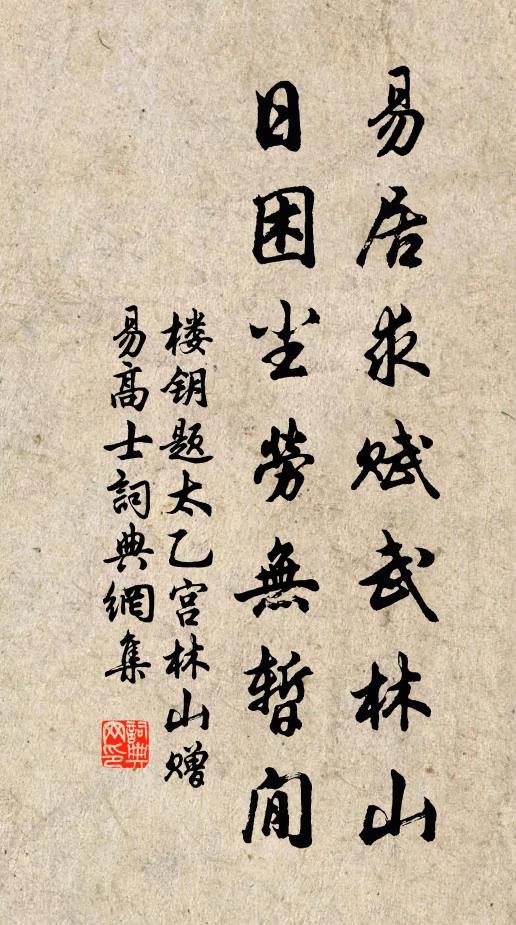 易居求赋武林山
日困尘勞無暫閒
楼钥题太乙宫林山赠
易高士詞典網集
詞典网印